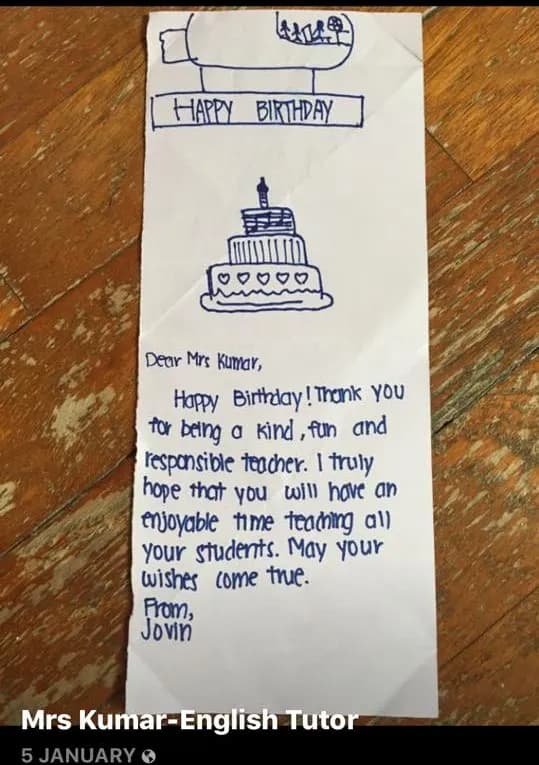 HAPPY BIRTHDAY
Dear Mrs Kumar,
Happy Birthday! Thank you
for being a kind, fun and
responsible teacher. I truly
hope that you will have an
enjoyable time teaching all
your students. May your
wishes come true.
From,
Jovin
Mrs Kumar-English Tutor
5 JANUARY